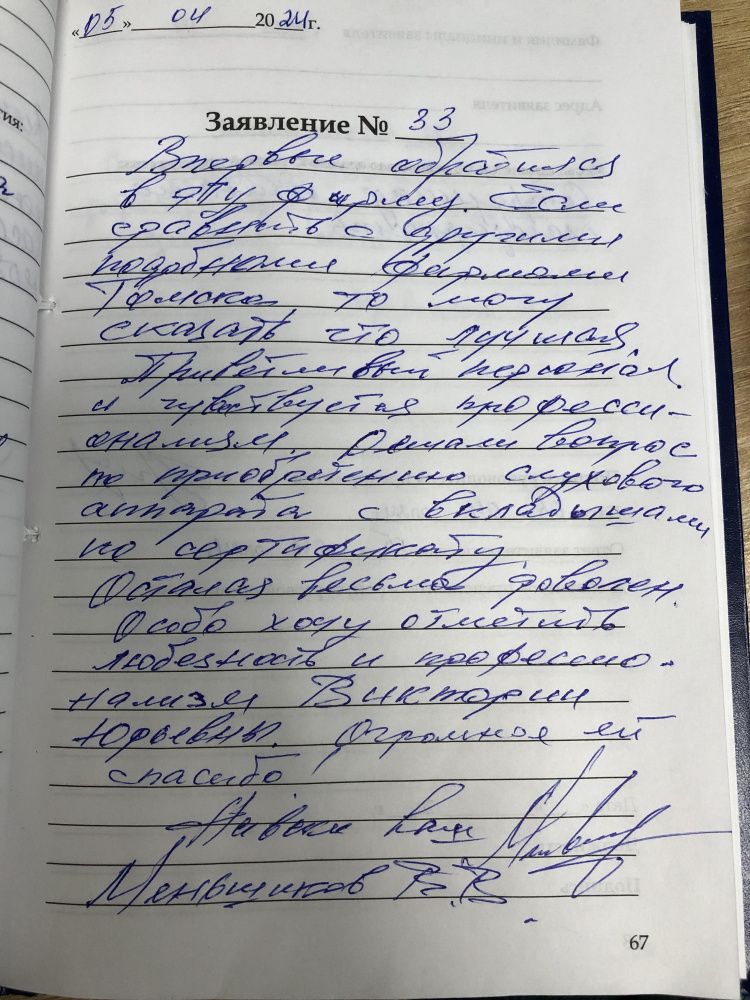 «05» 04 2024 г.
Заявление № 33
Впервые обратился
в эту фирму. Если
сравнить с другими
подобными фирмами
Томска то могу
сказать что лучшая.
Приветливый персонал
и чувствуется професси-
онализм. Решали вопрос
по приобретению слухового
аппарата с вкладышами
по сертификату.
Остался весьма доволен.
Особо хочу отметить
любезность и профессио-
нализм Виктории
Юрьевны. Огромное ей
спасибо
Навеки ваш
Меньщиков В.В.
67
тия: